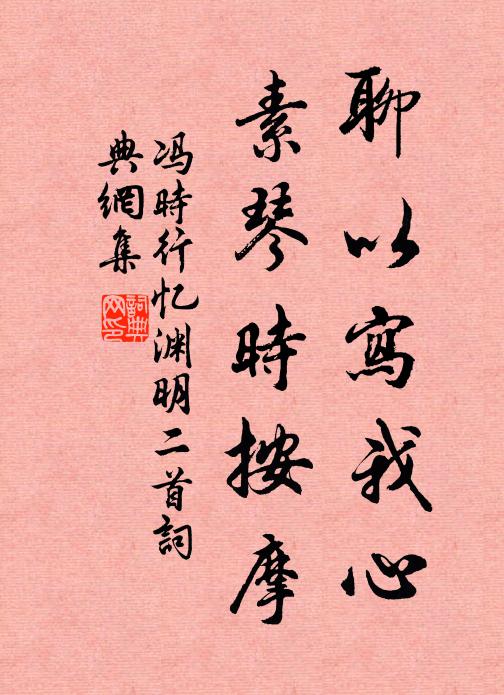 聊以寫我心
素琴時按摩
冯時行忆渊明二首詞
典網集
詞典网印